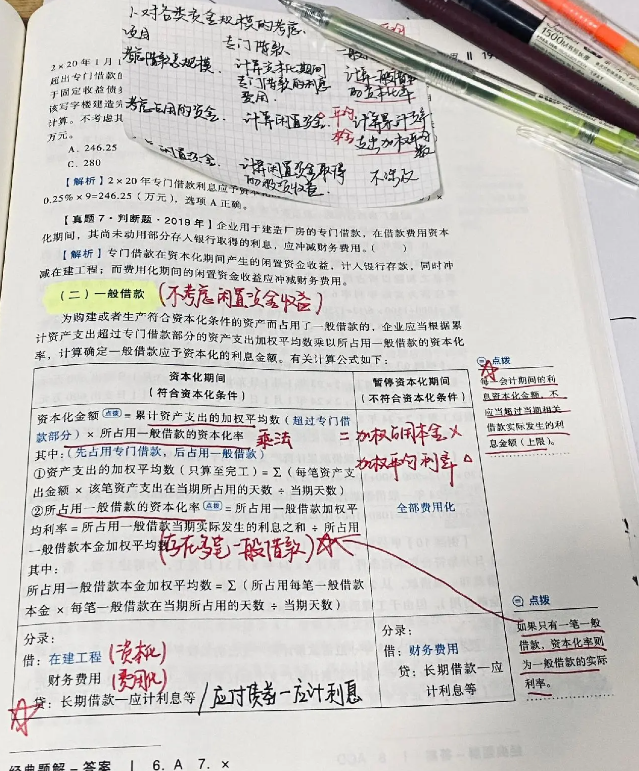 1.对各类资金规模的考虑
项目 专门借款 一般
考虑借款总规模. 计算资本化期间专门借款的利息费用. 计算一般借款的资本化率
考虑占用的资金. 计算闲置资金. 平均 计算累计支出加权平均数
本金
闲置资金. 计算闲置资金取得的投资收益. 不涉及
1500M
2×20年1月1
超出专门借款的
于固定收益债券
该写字楼建造完
计算。不考虑其
万元。
A. 246.25
C. 280
【解析】2×20年专门借款利息应予资本
0.25% × 9=246.25（万元），选项 A 正确。
【真题 7 · 判断题 · 2019 年】企业用于建造厂房的专门借款，在借款费用资本
化期间，其尚未动用部分存入银行取得的利息，应冲减财务费用。（ ）
【解析】专门借款在资本化期间产生的闲置资金收益，计入银行存款，同时冲
减在建工程；而费用化期间的闲置资金收益应冲减财务费用。
（二）一般借款 (不考虑闲置资金收益)
为购建或者生产符合资本化条件的资产而占用了一般借款的，企业应当根据累
计资产支出超过专门借款部分的资产支出加权平均数乘以所占用一般借款的资本化
率，计算确定一般借款应予资本化的利息金额。有关计算公式如下：
资本化期间
（符合资本化条件）
暂停资本化期间
（不符合资本化条件）
资本化金额 点拨 = 累计资产支出的加权平均数（超过专门借
款部分）× 所占用一般借款的资本化率 乘法 = 加权占用本金 ×
其中：（先占用专门借款，后占用一般借款） 加权平均利率
①资产支出的加权平均数（只算至完工）= Σ（每笔资产支
出金额 × 该笔资产支出在当期所占用的天数 ÷ 当期天数）
②所占用一般借款的资本化率 点拨 = 所占用一般借款加权平
均利率 = 所占用一般借款当期实际发生的利息之和 ÷ 所占用
一般借款本金加权平均数 (存在多笔一般借款)
其中：
所占用一般借款本金加权平均数 = Σ（所占用每笔一般借款
本金 × 每笔一般借款在当期所占用的天数 ÷ 当期天数）
全部费用化
分录：
借：在建工程 (资本化)
财务费用 (费用化)
贷：长期借款—应计利息等 / 应付债券—应计利息
分录：
借：财务费用
贷：长期借款—应
计利息等
点拨
每一会计期间的利
息资本化金额，不
应当超过当期相关
借款实际发生的利
息金额（上限）。
点拨
如果只有一笔一般
借款，资本化率则
为一般借款的实际
利率。
经典题解 – 答案 | 6. A 7. ×